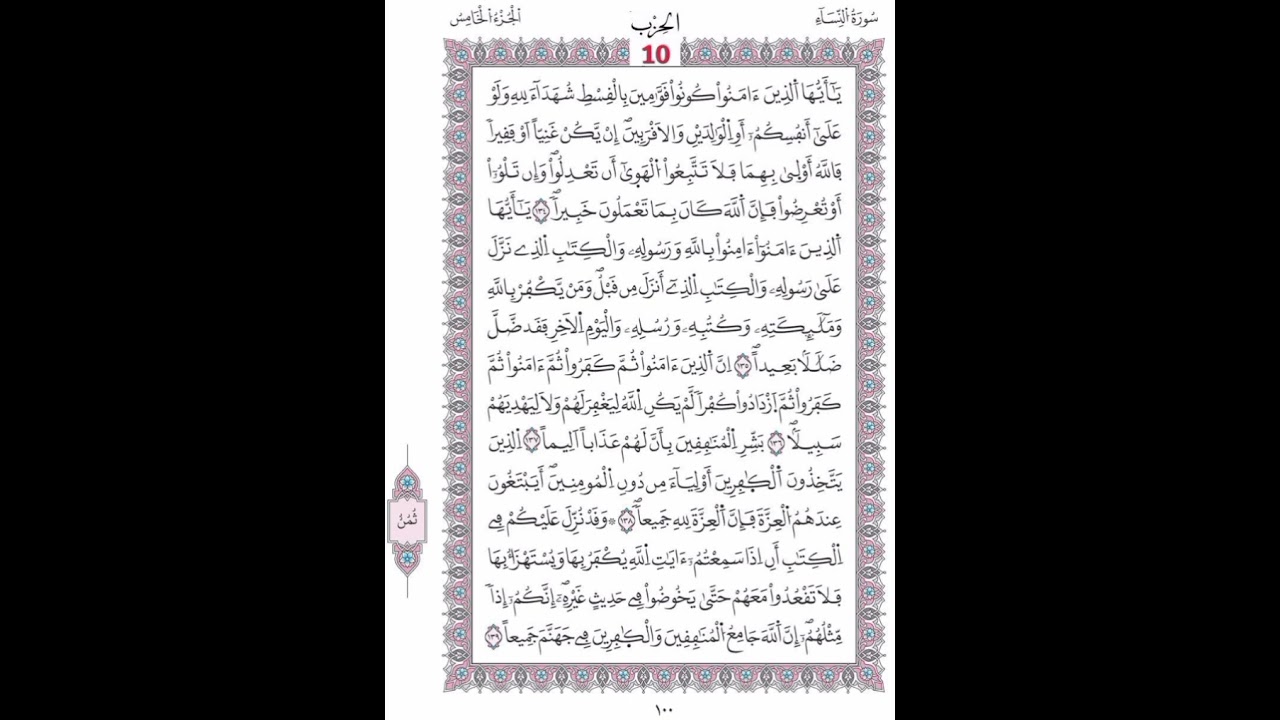 سُورَةُ النِّسَآءِ
الحِزْب
الجُزْءُ الخَامِسُ
10
يَٰٓأَيُّهَا اَ۬لذِينَ ءَامَنُواْ كُونُواْ قَوَّٰمِينَ بِالْقِسْطِ شُهَدَآءَ لِلهِ وَلَوْ
عَلَىٰٓ أَنفُسِكُمُۥٓ أَوِ اِ۬لْوَٰلِدَيْنِ وَالَاقْرَبِينَۖ إِنْ يَّكُنْ غَنِيّاً اَوْ فَقِيراٗ
فَاللَّهُ أَوْلَىٰ بِهِمَا فَلَا تَتَّبِعُواْ اُ۬لْهَوَىٰٓ أَن تَعْدِلُواْۖ وَإِن تَلْوُۥٓاْ
أَوْ تُعْرِضُواْ فَإِنَّ اَ۬للَّهَ كَانَ بِمَا تَعْمَلُونَ خَبِيراٗۖ ١٣٤ يَٰٓأَيُّهَا
اَ۬لذِينَ ءَامَنُوٓاْ ءَامِنُواْ بِاللَّهِ وَرَسُولِهِۦ وَالْكِتَٰبِ اِ۬لذِے نَزَّلَ
عَلَىٰ رَسُولِهِۦ وَالْكِتَٰبِ اِ۬لذِےٓ أَنزَلَ مِن قَبْلُۖ وَمَنْ يَّكْفُرْ بِاللَّهِ
وَمَلَٰٓئِكَتِهِۦ وَكُتُبِهِۦ وَرُسُلِهِۦ وَالْيَوْمِ اِ۬لَاخِرِ فَقَد ضَّلَّ
ضَلَٰلَاۢ بَعِيداًۖ ١٣٥ اِنَّ اَ۬لذِينَ ءَامَنُواْ ثُمَّ كَفَرُواْ ثُمَّ ءَامَنُواْ ثُمَّ
كَفَرُواْ ثُمَّ اَ۪زْدَادُواْ كُفْراٗ لَّمْ يَكُنِ اِ۬للَّهُ لِيَغْفِرَ لَهُمْ وَلَا لِيَهْدِيَهُمْ
سَبِيلَاۢۖ ١٣٦ بَشِّرِ اِ۬لْمُنَٰفِقِينَ بِأَنَّ لَهُمْ عَذَاباً اَلِيماًۖ ١٣٧ اِ۬لذِينَ
يَتَّخِذُونَ اَ۬لْكَٰفِرِينَ أَوْلِيَآءَ مِن دُونِ اِ۬لْمُومِنِينَۖ أَيَبْتَغُونَ
عِندَهُمُ اُ۬لْعِزَّةَ فَإِنَّ اَ۬لْعِزَّةَ لِلهِ جَمِيعاٗۖ ١٣٨ ۞ وَقَدْ نُزِّلَ عَلَيْكُمْ فِے
اِ۬لْكِتَٰبِ أَنِ اِذَا سَمِعْتُمُۥٓ ءَايَٰتِ اِ۬للَّهِ يُكْفَرُ بِهَا وَيُسْتَهْزَأُ بِهَا
فَلَا تَقْعُدُواْ مَعَهُمْ حَتَّىٰ يَخُوضُواْ فِے حَدِيثٍ غَيْرِهِۦٓۖ إِنَّكُمُۥٓ إِذاٗ
مِّثْلُهُمُۥٓۖ إِنَّ اَ۬للَّهَ جَامِعُ اُ۬لْمُنَٰفِقِينَ وَالْكَٰفِرِينَ فِے جَهَنَّمَ جَمِيعاً ١٣٩
ثُمُنُ
١٠٠